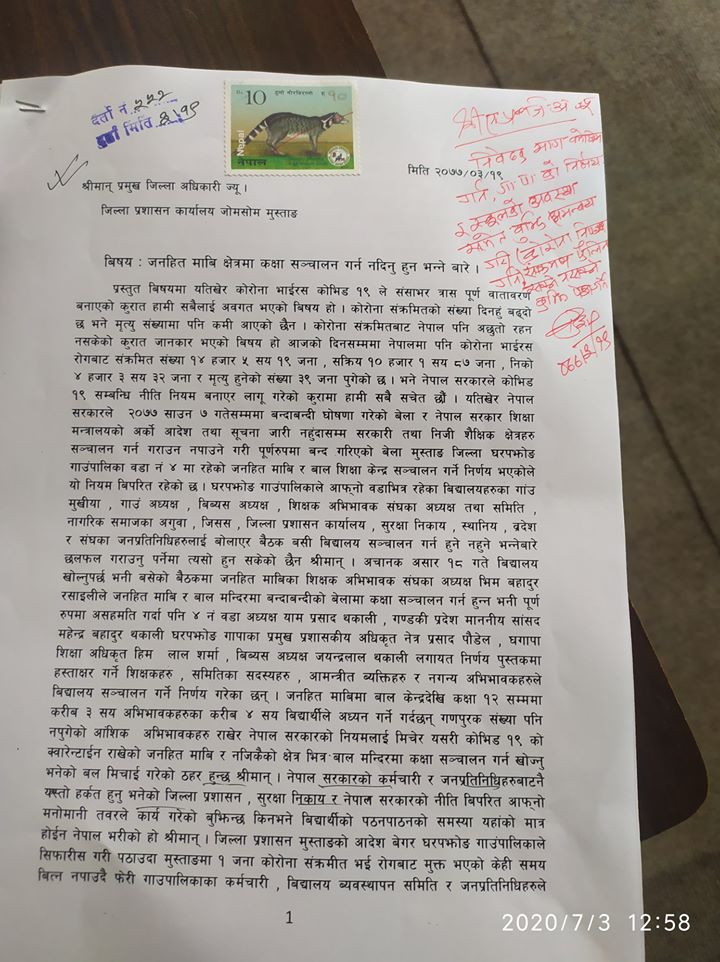 दर्ता नं. २२२
दर्ता मिति ३।१९
Rs. 10
ठूलो नीरबिरालो
रु १०
Nepal
नेपाल
मिति २०७७/०३/१९
श्रीमान् प्रमुख जिल्ला अधिकारी ज्यू ।
जिल्ला प्रशासन कार्यालय जोमसोम मुस्ताङ
बिषय : जनहित माबि क्षेत्रमा कक्षा सञ्चालन गर्न नदिनु हुन भन्ने बारे ।
प्रस्तुत बिषयमा यतिखेर कोरोना भाईरस कोभिड १९ ले संसाभर त्रास पूर्ण वातावरण
बनाएको कुरात हामी सबैलाई अवगत भएको बिषय हो । कोरोना संक्रमितको संख्या दिनहुं बढ्दो
छ भने मृत्यु संख्यामा पनि कमी आएको छैन । कोरोना संक्रमितबाट नेपाल पनि अछुतो रहन
नसकेको कुरात जानकार भएको बिषय हो आजको दिनसम्ममा नेपालमा पनि कोरोना भाईरस
रोगबाट संक्रमित संख्या १४ हजार ५ सय १९ जना , सक्रिय १० हजार १ सय ८७ जना , निको
४ हजार ३ सय ३२ जना र मृत्यु हुनेको संख्या ३९ जना पुगेको छ । भने नेपाल सरकारले कोभिड
१९ सम्बन्धि नीति नियम बनाएर लागू गरेको कुरामा हामी सबै सचेत छौं । यतिखेर नेपाल
सरकारले २०७७ साउन ७ गतेसम्ममा बन्दाबन्दी घोषणा गरेको बेला र नेपाल सरकार शिक्षा
मन्त्रालयको अर्को आदेश तथा सूचना जारी नहुंदासम्म सरकारी तथा निजी शैक्षिक क्षेत्रहरु
सञ्चालन गर्न गराउन नपाउने गरी पूर्णरुपमा बन्द गरिएको बेला मुस्ताङ जिल्ला घरपझोङ
गाउंपालिका वडा नं ४ मा रहेको जनहित माबि र बाल शिक्षा केन्द्र सञ्चालन गर्ने निर्णय भएकोले
यो नियम बिपरित रहेको छ । घरपझोङ गाउंपालिकाले आफ्नो वडाभित्र रहेका बिद्यालयहरुका गांउ
मुखीया , गाउं अध्यक्ष , बिब्यस अध्यक्ष , शिक्षक अभिभावक संघका अध्यक्ष तथा समिति ,
नागरिक समाजका अगुवा , जिसस , जिल्ला प्रशासन कार्यालय , सुरक्षा निकाय , स्थानिय , प्रदेश
र संघका जनप्रतिनिधिहरुलाई बोलाएर बैठक बसी बिद्यालय सञ्चालन गर्न हुने नहुने भन्नेबारे
छलफल गराउनु पर्नेमा त्यसो हुन सकेको छैन श्रीमान् । अचानक असार १८ गते बिद्यालय
खोल्नुपर्छ भनी बसेको बैठकमा जनहित माबिका शिक्षक अभिभावक संघका अध्यक्ष भिम बहादुर
रसाइलीले जनहित माबि र बाल मन्दिरमा बन्दाबन्दीको बेलामा कक्षा सञ्चालन गर्न हुन्न भनी पूर्ण
रुपमा असहमति गर्दा पनि ४ नं वडा अध्यक्ष याम प्रसाद थकाली , गण्डकी प्रदेश माननीय सांसद
महेन्द्र बहादुर थकाली घरपझोङ गापाका प्रमुख प्रशासकीय अधिकृत नेत्र प्रसाद पौडेल , घगापा
शिक्षा अधिकृत हिम लाल शर्मा , बिब्यस अध्यक्ष जयन्द्रलाल थकाली लगायत निर्णय पुस्तकमा
हस्ताक्षर गर्ने शिक्षकहरु , समितिका सदस्यहरु , आमन्त्रीत ब्यक्तिहरु र नगन्य अभिभावकहरुले
बिद्यालय सञ्चालन गर्ने निर्णय गरेका छन् । जनहित माबिमा बाल केन्द्रदेखि कक्षा १२ सम्ममा
करीब ३ सय अभिभावकहरुका करीब ४ सय बिद्यार्थीले अध्यन गर्ने गर्दछन् गणपुरक संख्या पनि
नपुगेको आंशिक अभिभावकहरु राखेर नेपाल सरकारको नियमलाई मिचेर यसरी कोभिड १९ को
क्वारेन्टाईन राखेको जनहित माबि र नजिकैको क्षेत्र भित्र बाल मन्दिरमा कक्षा सञ्चालन गर्न खोज्नु
भनेको बल मिचाई गरेको ठहर हुन्छ श्रीमान् । नेपाल सरकारको कर्मचारी र जनप्रतिनिधिहरुबाटनै
यस्तो हर्कत हुनु भनेको जिल्ला प्रशासन , सुरक्षा निकाय र नेपाल सरकारको नीति बिपरित आफ्नो
मनोमानी तवरले कार्य गरेको बुझिन्छ किनभने बिद्यार्थीको पठनपाठनको समस्या यहांको मात्र
होईन नेपाल भरीको हो श्रीमान् । जिल्ला प्रशासन मुस्ताङको आदेश बेगर घरपझोङ गाउंपालिकाले
सिफारीस गरी पठाउदा मुस्ताङमा १ जना कोरोना संक्रमीत भई रोगबाट मुक्त भएको केही समय
बित्न नपाउदै फेरी गाउपालिकाका कर्मचारी , बिद्यालय ब्यवस्थापन समिति र जनप्रतिनिधिहरुले
1
2020/7/3 12:58